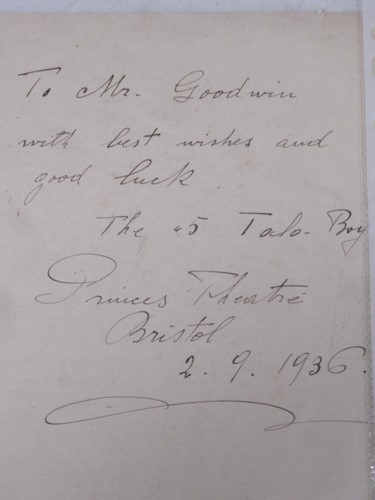 To Mr. Goodwin
with best wishes and
good luck
The "5 Talo-Boy
Princes Theatre
Bristol
2. 9. 1936.